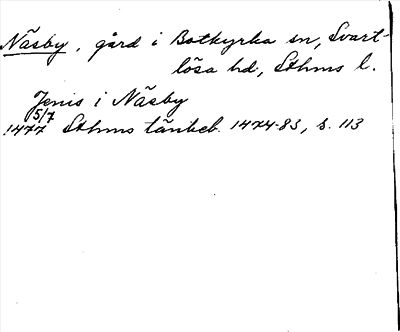 Näsby, gård i Botkyrka sn, Svart-
lösa hd, Sthms l.
Jenis i Näsby
5/7
1477 Sthms tänkeb. 1474-83, s. 113